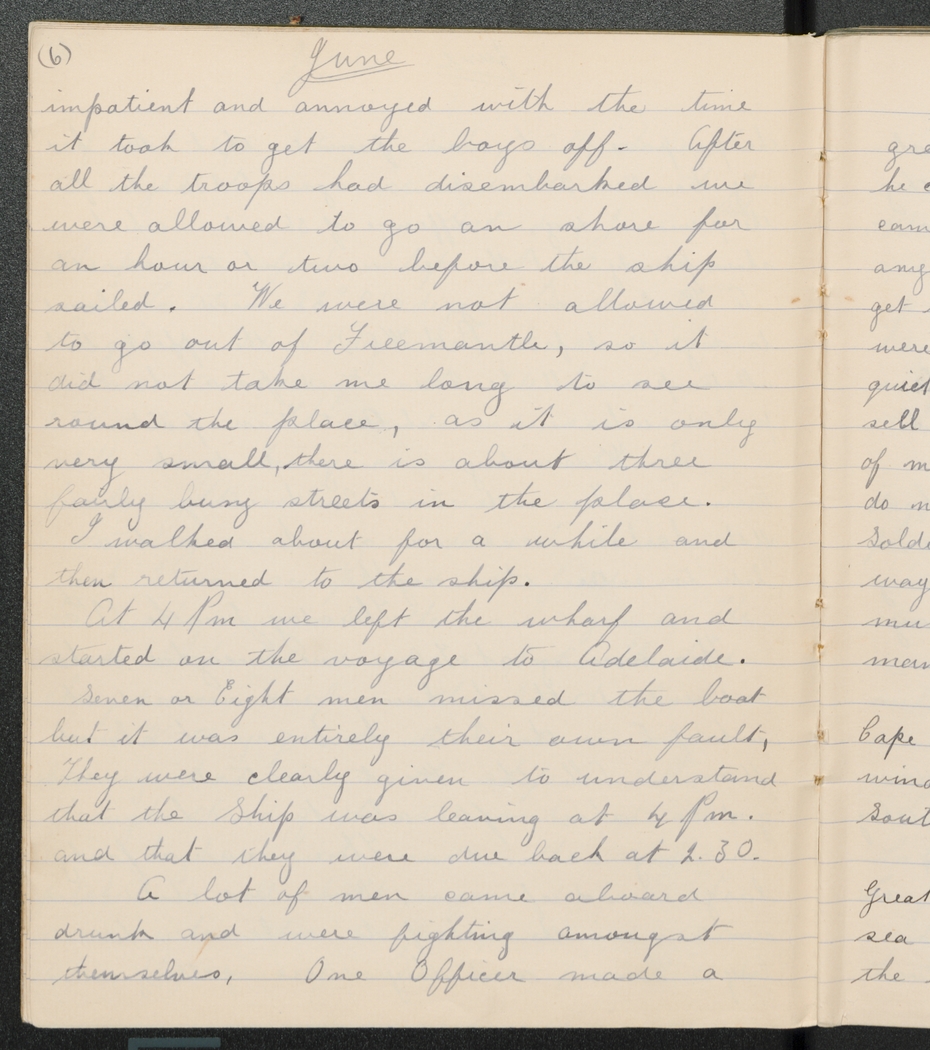 (6) June
impatient and annoyed with the time
it took to get the boys off. After
all the troops had disembarked we
were allowed to go on shore for
an hour or two before the ship
sailed. We were not allowed
to go out of Freemantle, so it
did not take me long to see
round the place, as it is only
very small, there is about three
fairly busy streets in the place.
I walked about for a while and
then returned to the ship.
At 4 Pm we left the wharf and
started on the voyage to Adelaide.
Seven or Eight men missed the boat
but it was entirely their own fault,
They were clearly given to understand
that the Ship was leaving at 4 Pm.
and that they were due back at 2.30.
A lot of men came aboard
drunk and were fighting amongst
themselves, One Officer made a
he
get
were
quiet
sell
of m
do n
way
Cape
Great
sea
the